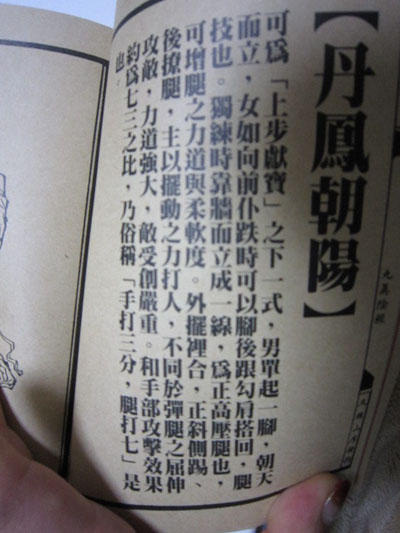 【丹鳳朝陽】
可爲「上步獻寶」之下一式，男單起一腳，朝天
而立，女如向前仆跌時可以腳後跟勾肩搭回，腿
技也。獨練時靠牆而立成一線，爲正高壓腿也，
可增腿之力道與柔軟度。外擺裡合，正斜側踢、
後撩腿，主以擺動之力打人，不同於彈腿之屈伸
攻敵，力道強大，敵受創嚴重。和手部攻擊效果
約爲七三之比，乃俗稱「手打三分，腿打七」是
也。
九真陰經